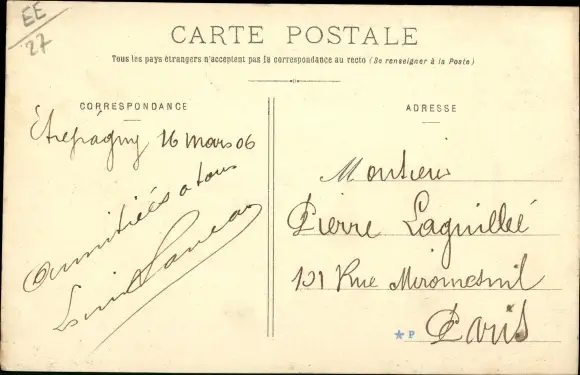 EE
27
CARTE POSTALE
Tous les pays étrangers n'acceptent pas la correspondance au recto (Se renseigner à la Poste)
CORRESPONDANCE
Étrépagny 16 mars 06
Ammitiées a tous
Louis
ADRESSE
Monsieur
Pierre Laguillée
101 Rue Miromesnil
* P Paris